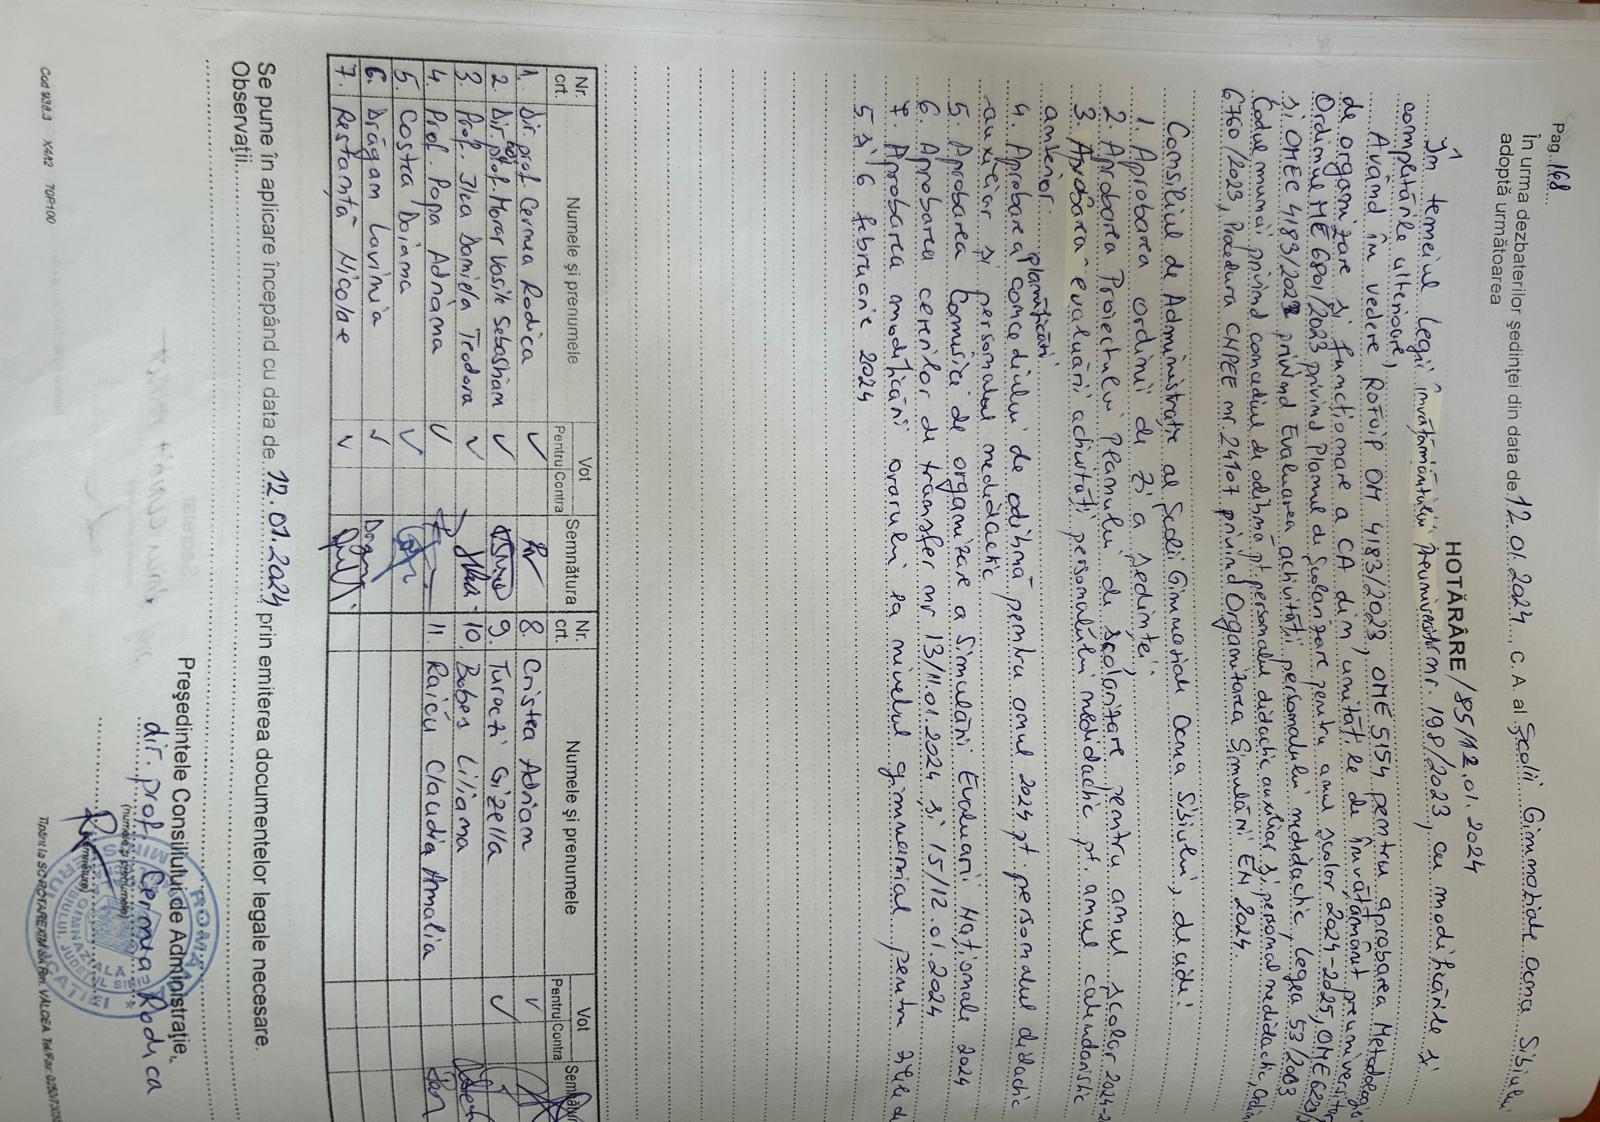 Pag. 168
În urma dezbaterilor ședinței din data de 12.01.2024 C. A. al Școlii Gimnaziale Ocna Sibiului
adoptă următoarea
HOTĂRÂRE / 85/12.01.2024
În temeiul legii învățământului preuniversitar nr. 198/2023, cu modificările și
completările ulterioare,
Având în vedere ROFUIP OM 4183/2023, OME 5154 pentru aprobarea Metodologiei
de organizare și funcționare a CA din unitățile de învățământ preuniversitar
Ordinul ME 6801/2023 privind Planul de școlarizare pentru anul școlar 2024-2025, OME 623/
și OMEC 4183/2022 privind Evaluarea activității personalului nedidactic, Legea 53/2003
Codul muncii privind concediul de odihnă pt personalul didactic auxiliar și personal nedidactic, Ordin
6760/2023, Procedura CNPEE nr. 24107 privind Organizarea Simulării EN 2024.
Consiliul de Administrație al Școlii Gimnaziale Ocna Sibiului, decide:
1. Aprobarea ordinii de zi a ședinței;
2. Aprobarea Proiectului planului de școlarizare pentru anul școlar 2024-2
3. Aprobarea evaluării activității personalului nedidactic pt. anul calendaristic
anterior.
planificării
4. Aprobarea concediului de odihnă pentru anul 2024 pt. personalul didactic
auxiliar și personalul nedidactic
5. Aprobarea Comisiei de organizare a Simulării Evaluarii Naționale 2024
6. Aprobarea cererilor de transfer nr. 13/11.01.2024 și 15/12.01.2024
7. Aprobarea modificării orarului la nivelul gimnazial pentru zilele de
5 și 6 februarie 2024
Nr. crt. Numele și prenumele Vot Pentru Contra Semnătura Nr. crt. Numele și prenumele Vot Pentru Contra Semnătura
1. Dir. prof. Cernea Rodica ✓ 8. Cristea Adrian ✓
2. Dir. prof. Morar Vasile Sebastian ✓ 9. Turoczi Gizella ✓
3. Prof. Ilca Daniela Teodora ✓ 10. Bobeș Liliana
4. Prof. Popa Adriana ✓ 11. Raicu Claudia Amalia
5. Costra Doiana ✓
6. Drăgan Lavinia ✓
7. Restanță Nicolae ✓
Se pune în aplicare începând cu data de 12.01.2024 prin emiterea documentelor legale necesare.
Observații
Președintele Consiliului de Administrație,
dir. prof. Cernea Rodica
(numele și prenumele)
(semnătura)
Cod 9.38.3 X4/t2 70P100
Tipărit la SC ROTAREXIM SA Rm. VALCEA Tel/Fax